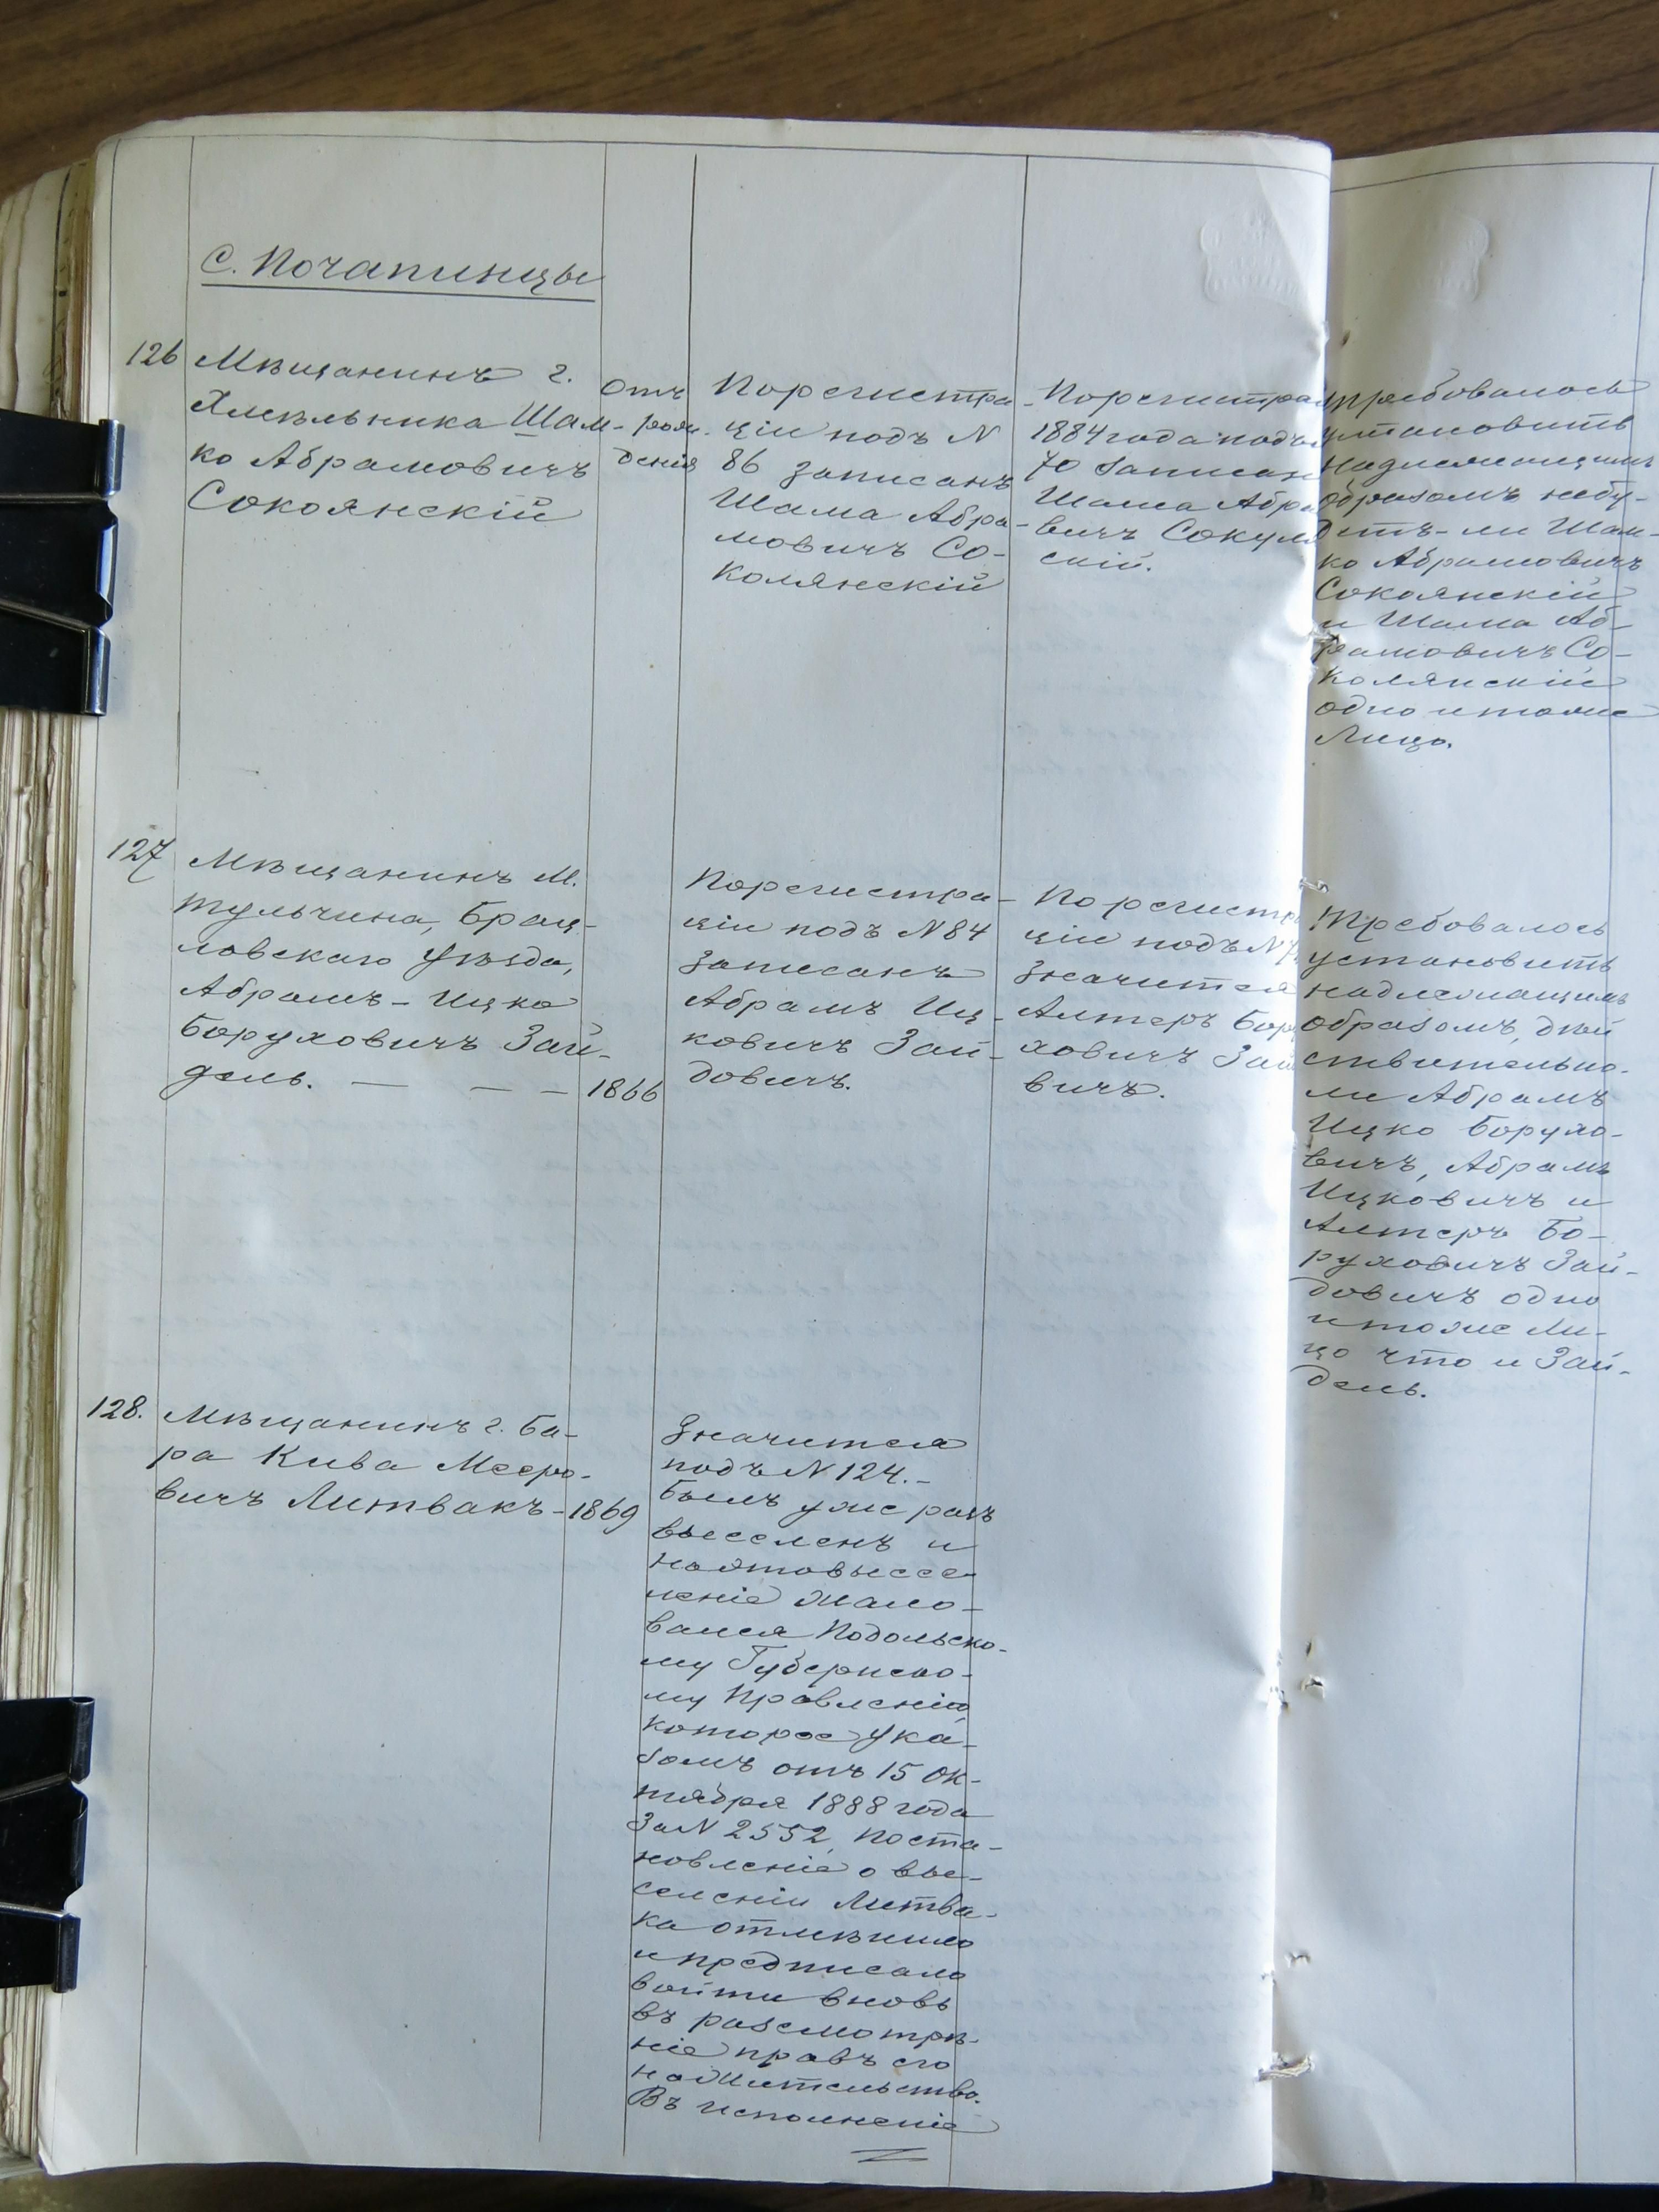 С. Почапинцы
126
Мѣщанинъ г.
Хмѣльника Шам-
ко Абрамовичъ
Сокоянскій
Отъ
рож-
денія
По регистра-
ціи подъ N
86 записанъ
Шама Абра-
мовичъ Со-
колянскій
По регистра
1884 года подъ
70 записан
Шама Абра
вичъ Сокуля
скій.
Требовалось
установить
надлежащимъ
образомъ небу-
детъ-ли Шам-
ко Абрамовичъ
Сокоянскій
и Шама Аб-
рамовичъ Со-
колянскій
одно и тоже
лицо.
127
Мѣщанинъ м.
Тульчина, Брац-
лавскаго уѣзда,
Абрамъ-Ицко
Боруховичъ Зай-
дель. — — — 1866
По регистра-
ціи подъ N 84
записанъ
Абрамъ Иц-
ковичъ Зай-
довичъ.
По регистра
ціи подъ N
значится
Алтеръ Бор
ховичъ Зай
вичъ.
Требовалось
установить
надлежащимъ
образомъ, дѣй
ствительно-
ли Абрамъ
Ицко Борухо-
вичъ, Абрамъ
Ицковичъ и
Алтеръ Бо-
руховичъ Зай-
довичъ одно
и тоже ли-
цо что и Зай-
дель.
128.
Мѣщанинъ г. Ба-
ра Кива Мееро-
вичъ Литвакъ - 1869
Значится
подъ N 124.-
Былъ уже разъ
выселенъ и
на это высе-
леніе жало-
вался Подольско-
му Губернско-
му Правленію,
которое ука-
зомъ отъ 15 Ок-
тября 1888 года
За N 2552, поста-
новленіе о вы-
селеніи Литва-
ка отмѣнило
и предписало
войти вновь
въ разсмотрѣ-
ніе правъ его
на жительство.
Въ исполненіе